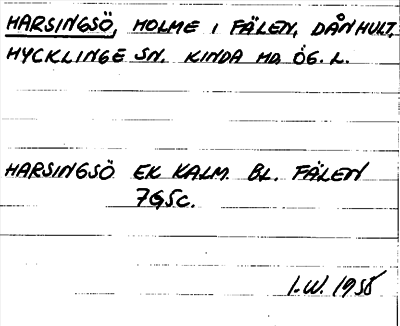 HARSINGSÖ, HOLME I FÄLEN, DÅNHULT,
HYCKLINGE SN. KINDA HD. ÖG. L.
HARSINGSÖ EK KALM. BL. FÄLEN
7G5c.
I.W. 1958